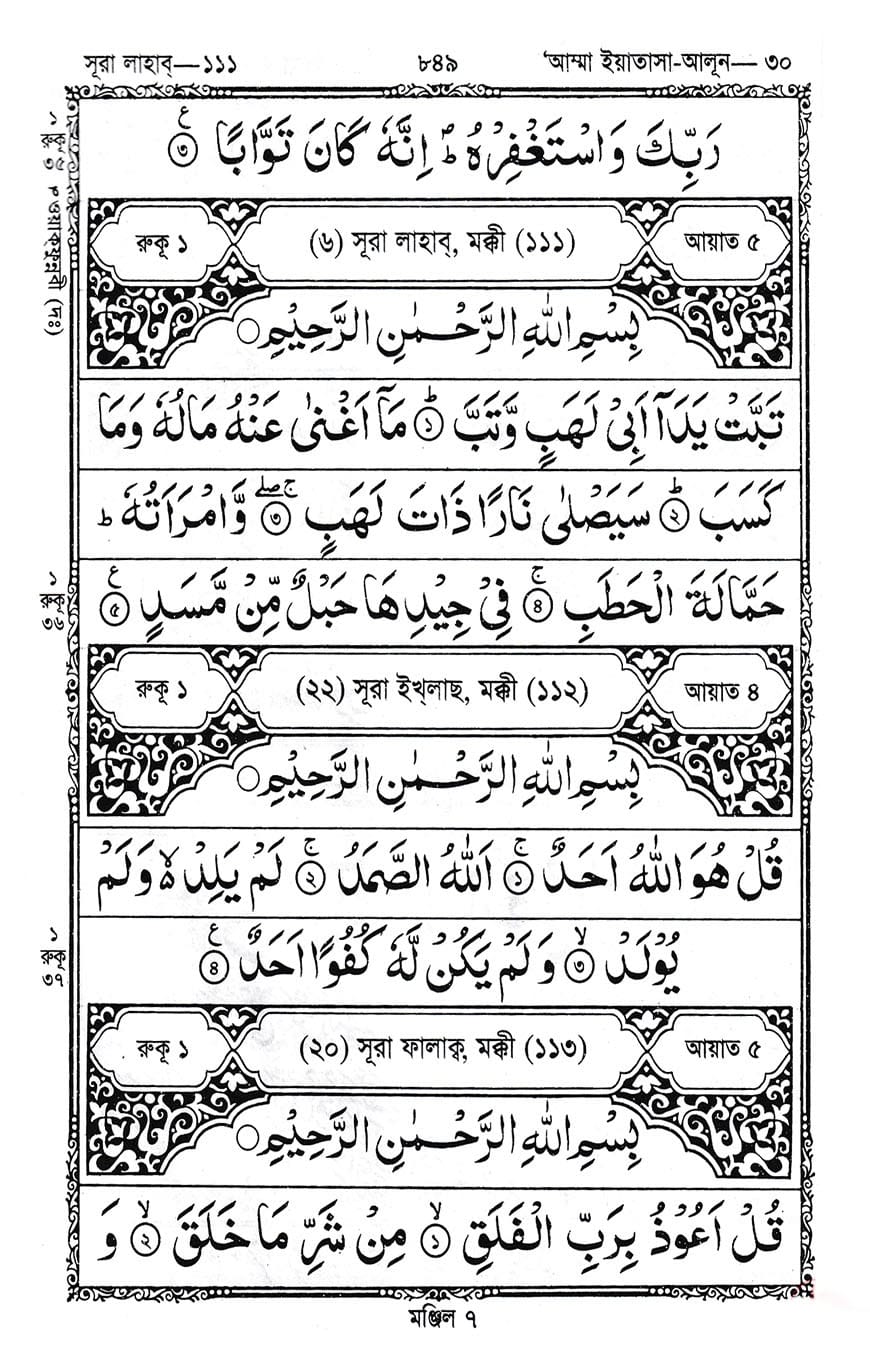 সূরা লাহাব্—১১১ ৮৪৯ ‘আম্মা ইয়াতাসা-আলূন— ৩০
رَبِّكَ وَاسْتَغْفِرْهُ ؕ اِنَّهٗ كَانَ تَوَّابًا ۝٣ ع
১
রুকূ
৩৫
ওয়াক্কুন্নবী (দঃ)
রুকূ ১ (৬) সূরা লাহাব্, মক্কী (১১১) আয়াত ৫
بِسْمِ اللّٰهِ الرَّحْمٰنِ الرَّحِيْمِ
تَبَّتْ يَدَاۤ اَبِىْ لَهَبٍ وَّتَبَّ ؕ ۝١ مَاۤ اَغْنٰى عَنْهُ مَالُهٗ وَمَا
كَسَبَ ؕ ۝٢ سَيَصْلٰى نَارًا ذَاتَ لَهَبٍ ۚۖ ۝٣ وَّامْرَاَتُهٗ ؕ
حَمَّالَةَ الْحَطَبِ ۚ ۝٤ فِىْ جِيْدِهَا حَبْلٌ مِّنْ مَّسَدٍ ۝٥ ع
১
রুকূ
৩৬
রুকূ ১ (২২) সূরা ইখ্‌লাছ, মক্কী (১১২) আয়াত ৪
بِسْمِ اللّٰهِ الرَّحْمٰنِ الرَّحِيْمِ
قُلْ هُوَ اللّٰهُ اَحَدٌ ۚ ۝١ اَللّٰهُ الصَّمَدُ ۚ ۝٢ لَمْ يَلِدْ ۙ وَلَمْ
يُوْلَدْ ۙ ۝٣ وَلَمْ يَكُنْ لَّهٗ كُفُوًا اَحَدٌ ۝٤ ع
১
রুকূ
৩৭
রুকূ ১ (২০) সূরা ফালাক্ব, মক্কী (১১৩) আয়াত ৫
بِسْمِ اللّٰهِ الرَّحْمٰنِ الرَّحِيْمِ
قُلْ اَعُوْذُ بِرَبِّ الْفَلَقِ ۙ ۝١ مِنْ شَرِّ مَا خَلَقَ ۙ ۝٢ وَ
মঞ্জিল ৭